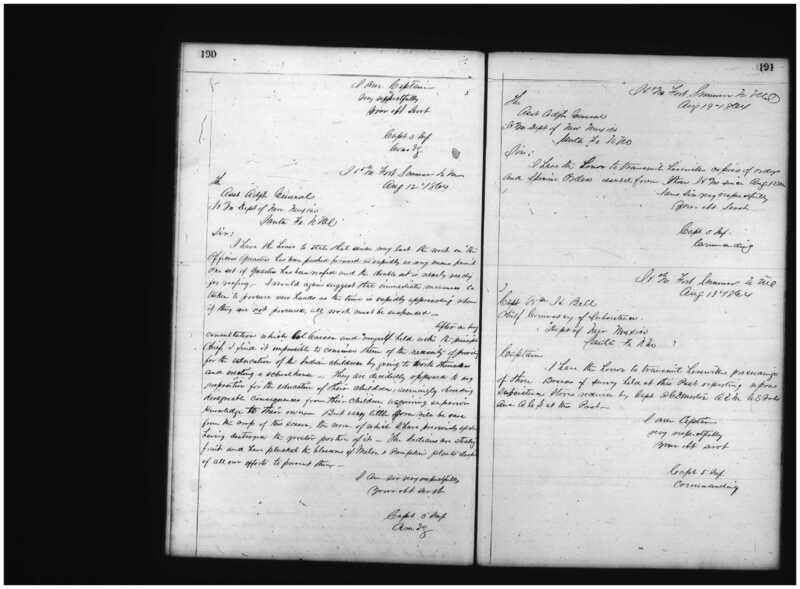 190
I am Captain
Very respectfully
Your obt Servt
Capt 5 Inf
Comdg
Hd Qrs Fort Sumner N Mex
Aug 12th 1864
The
Asst Adjt General
Hd Qrs Dept of New Mexico
Santa Fe N Me
Sir:
I have the honor to state that since my last the work on the
Officers Quarters has been pushed forward as rapidly as
One set of Quarters has been roofed and the double set is nearly ready
for roofing. I would again suggest that immediate measures be
taken to procure as the time is rapidly approaching when
if they are not procured, all work must be suspended.
After a long
consultation which Col Carson and myself held with the principal
Chiefs I find it impossible to convince them of the necessity of providing
for the education of the Indian children by going to work themselves
and a school house. They are decidedly opposed to any
for the education of their children, seemingly dreading
consequences from their children acquiring superior
knowledge to their own. But very little Corn will be
from the this season, the worm of which I have previously
having destroyed the greater portion of it. The Indians are stealing
fruit and have plucked the blossoms of Melon & Pumpkin plants
of all our efforts to prevent them.
I am Sir very respectfully
Your obt Servt
Capt 5 Inf
Comdg
191
Hd Qrs Fort Sumner N Me
Aug 19th 1864
The
Asst Adjt General
Hd Qrs Dept of New Mexico
Santa Fe N Me
Sir:
I have the honor to transmit herewith copies of orders
and Special Orders issued from these Hd Qrs since Aug
I am Sir very respectfully
Your obt Servt
Capt 5 Inf
Commanding
Hd Qrs Fort Sumner N Me
Aug 13th 1864
Capt Wm H Bell
Chief Commissary of Subsistence
Dept of New Mexico
Santa Fe N Me
Captain
I have the honor to transmit herewith proceedings
of three Boards of Survey held at this Post reporting upon
Subsistence Stores received by Capt
and at this Post.
I am Captain
very respectfully
Your obt Servt
Capt 5 Inf
Commanding